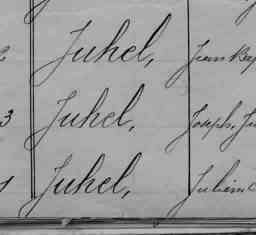 Juhel, Jean Bap
3 Juhel, Joseph, Ju
Juhel, Julien